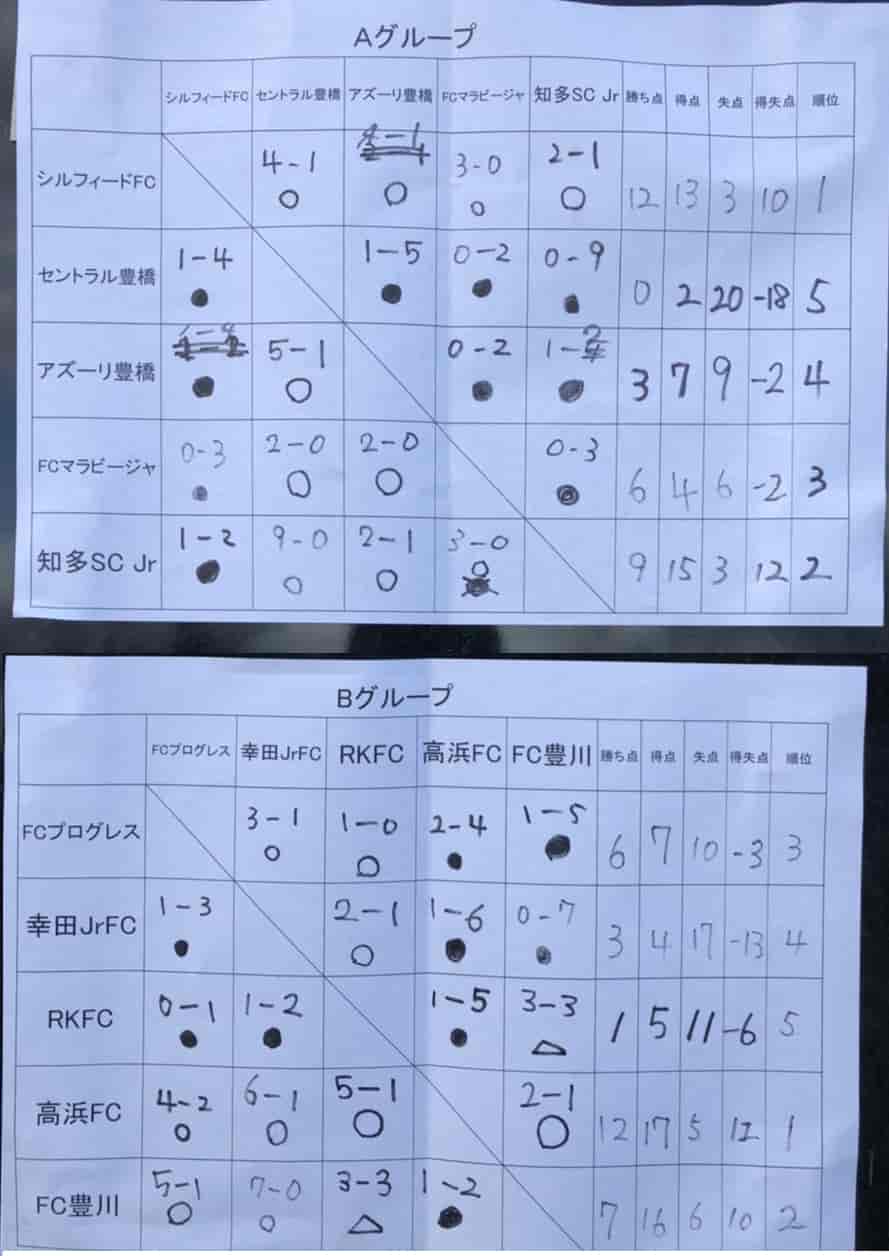 Aグループ
シルフィードFC セントラル豊橋 アズーリ豊橋 FCマラビージャ 知多SC Jr 勝ち点 得点 失点 得失点 順位
シルフィードFC 4-1 ○ 4-1 ○ 3-0 ○ 2-1 ○ 12 13 3 10 1
セントラル豊橋 1-4 ● 1-5 ● 0-2 ● 0-9 ● 0 2 20 -18 5
アズーリ豊橋 1-4 ● 5-1 ○ 0-2 ● 1-2 ● 3 7 9 -2 4
FCマラビージャ 0-3 ● 2-0 ○ 2-0 ○ 0-3 ● 6 4 6 -2 3
知多SC Jr 1-2 ● 9-0 ○ 2-1 ○ 3-0 ○ 9 15 3 12 2
Bグループ
FCプログレス 幸田JrFC RKFC 高浜FC FC豊川 勝ち点 得点 失点 得失点 順位
FCプログレス 3-1 ○ 1-0 ○ 2-4 ● 1-5 ● 6 7 10 -3 3
幸田JrFC 1-3 ● 2-1 ○ 1-6 ● 0-7 ● 3 4 17 -13 4
RKFC 0-1 ● 1-2 ● 1-5 ● 3-3 △ 1 5 11 -6 5
高浜FC 4-2 ○ 6-1 ○ 5-1 ○ 2-1 ○ 12 17 5 12 1
FC豊川 5-1 ○ 7-0 ○ 3-3 △ 1-2 ● 7 16 6 10 2